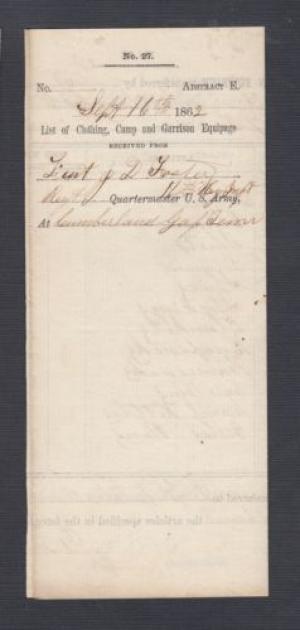 No. 27.
No. Abstract E.
Sept 16th 1862
List of Clothing, Camp and Garrison Equipage
RECEIVED FROM
Lieut J D Foster
Regt Quartermaster U. S. Army,
At Cumberland Gap Tenn
the articles specified in the